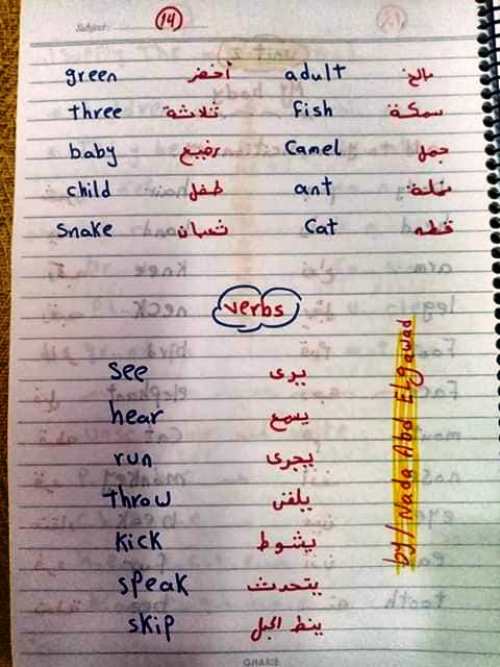 Subject:
14
green أخضر adult بالغ
three ثلاثة fish سمكة
baby رضيع Camel جمل
child طفل ant نملة
snake ثعبان Cat قطه
verbs
see يرى
hear يسمع
run يجرى
throw يلقى
kick يشوط
speak يتحدث
skip ينط الحبل
by/ Nada Abd Elgawad